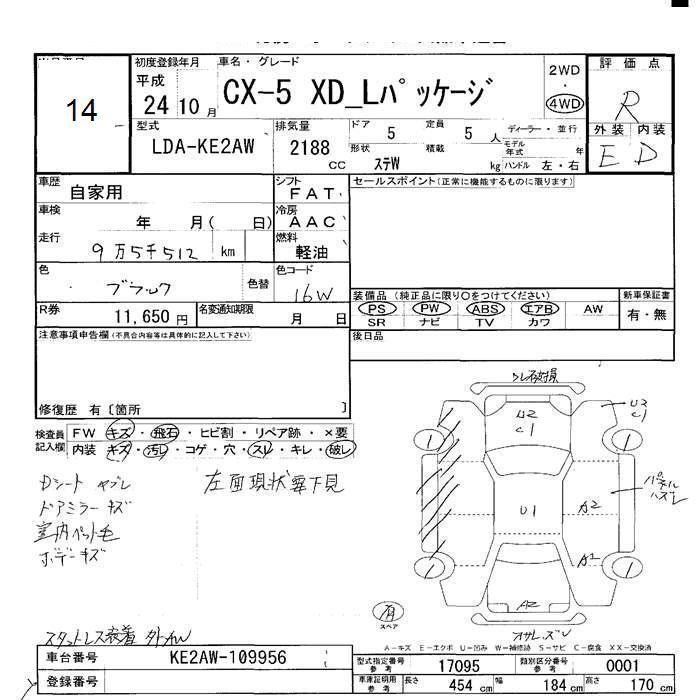 14
初度登録年月
平成
24 10 月
車名・グレード
CX-5 XD_Lパッケージ
2WD
・
4WD
評価点
R
外装 内装
E D
型式
LDA-KE2AW
排気量
2188
CC
ドア
5
定員
5 人
形状
ステW
積載
kg
ディーラー・並行
モデル年式 年
ハンドル 左・右
車歴
自家用
シフト
FAT
セールスポイント(正常に機能するものに限ります)
車検
年 月( 日)
冷房
AAC
走行
9万5千512 km
燃料
軽油
色
ブラック
色替
色コード
16W
R券
11,650 円
名変通知期限
月 日
装備品(純正品に限り○をつけてください)
PS PW ABS エアB AW
SR ナビ TV カワ
新車保証書
有・無
注意事項申告欄(不具合内容等は具体的に記入して下さい)
後日品
修復歴 有〔箇所 〕
検査員記入欄
FW キズ・飛石・ヒビ割・リペア跡・×要
内装 キズ・汚レ・コゲ・穴・スレ・キレ・破レ
Dシート ヤブレ
ドアミラー キズ
室内ペット毛
ボデーキズ
左面現状要下見
U2
C1
U2
C1
1
1
U1
A2
パネル
ハズレ
A2
1
1
A2
有
スペア
スタットレス装着 外AW
A-キズ E-エクボ U-凹み W-補修跡 S-サビ C-腐食 XX-交換済
車台番号
KE2AW-109956
1
登録番号
型式指定番号
参考
17095
類別区分番号
参考
0001
車庫証明用
参考
長さ
454 cm
幅
184 cm
高さ
170 cm